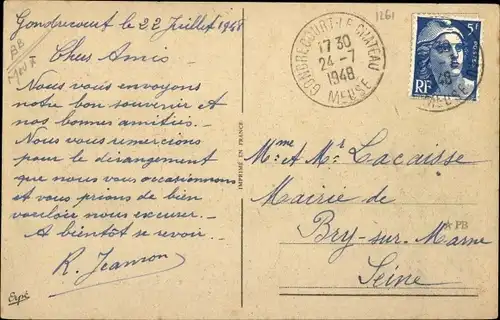 Gondrecourt le 22 Juillet 1948
Chers Amis
Nous vous envoyons
notre bon souvenir et
nos bonnes amitiés.
Nous vous remercions
pour le dérangement
que nous vous occasionnons
et vous prions de bien
vouloir nous excuser.
A bientôt se revoir.
R. Jeanson
Erpé
IMPRIMÉ EN FRANCE
1261
GONDRECOURT-LE CHATEAU
17 30
24 -7
1948
MEUSE
5F
RF
48
MEUSE
Mme A Mr Lacaisse
Mairie de
Bry-sur-Marne
Seine
PB